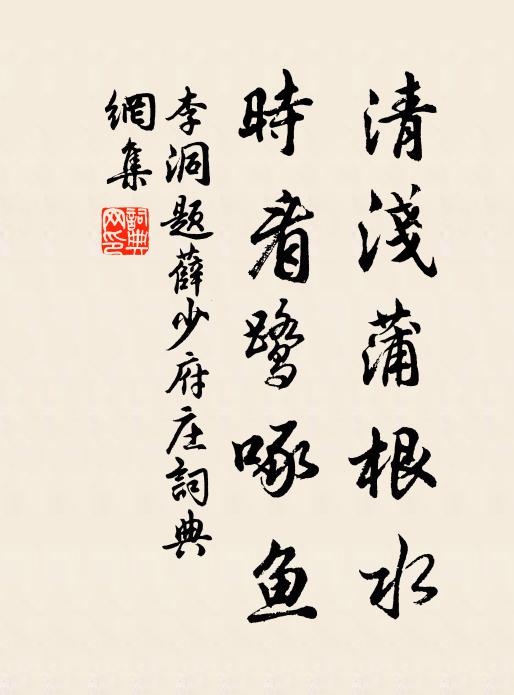 清淺蒲根水
時看鷺啄魚
李洞題薛少府庄詞典
網集
詞典网印